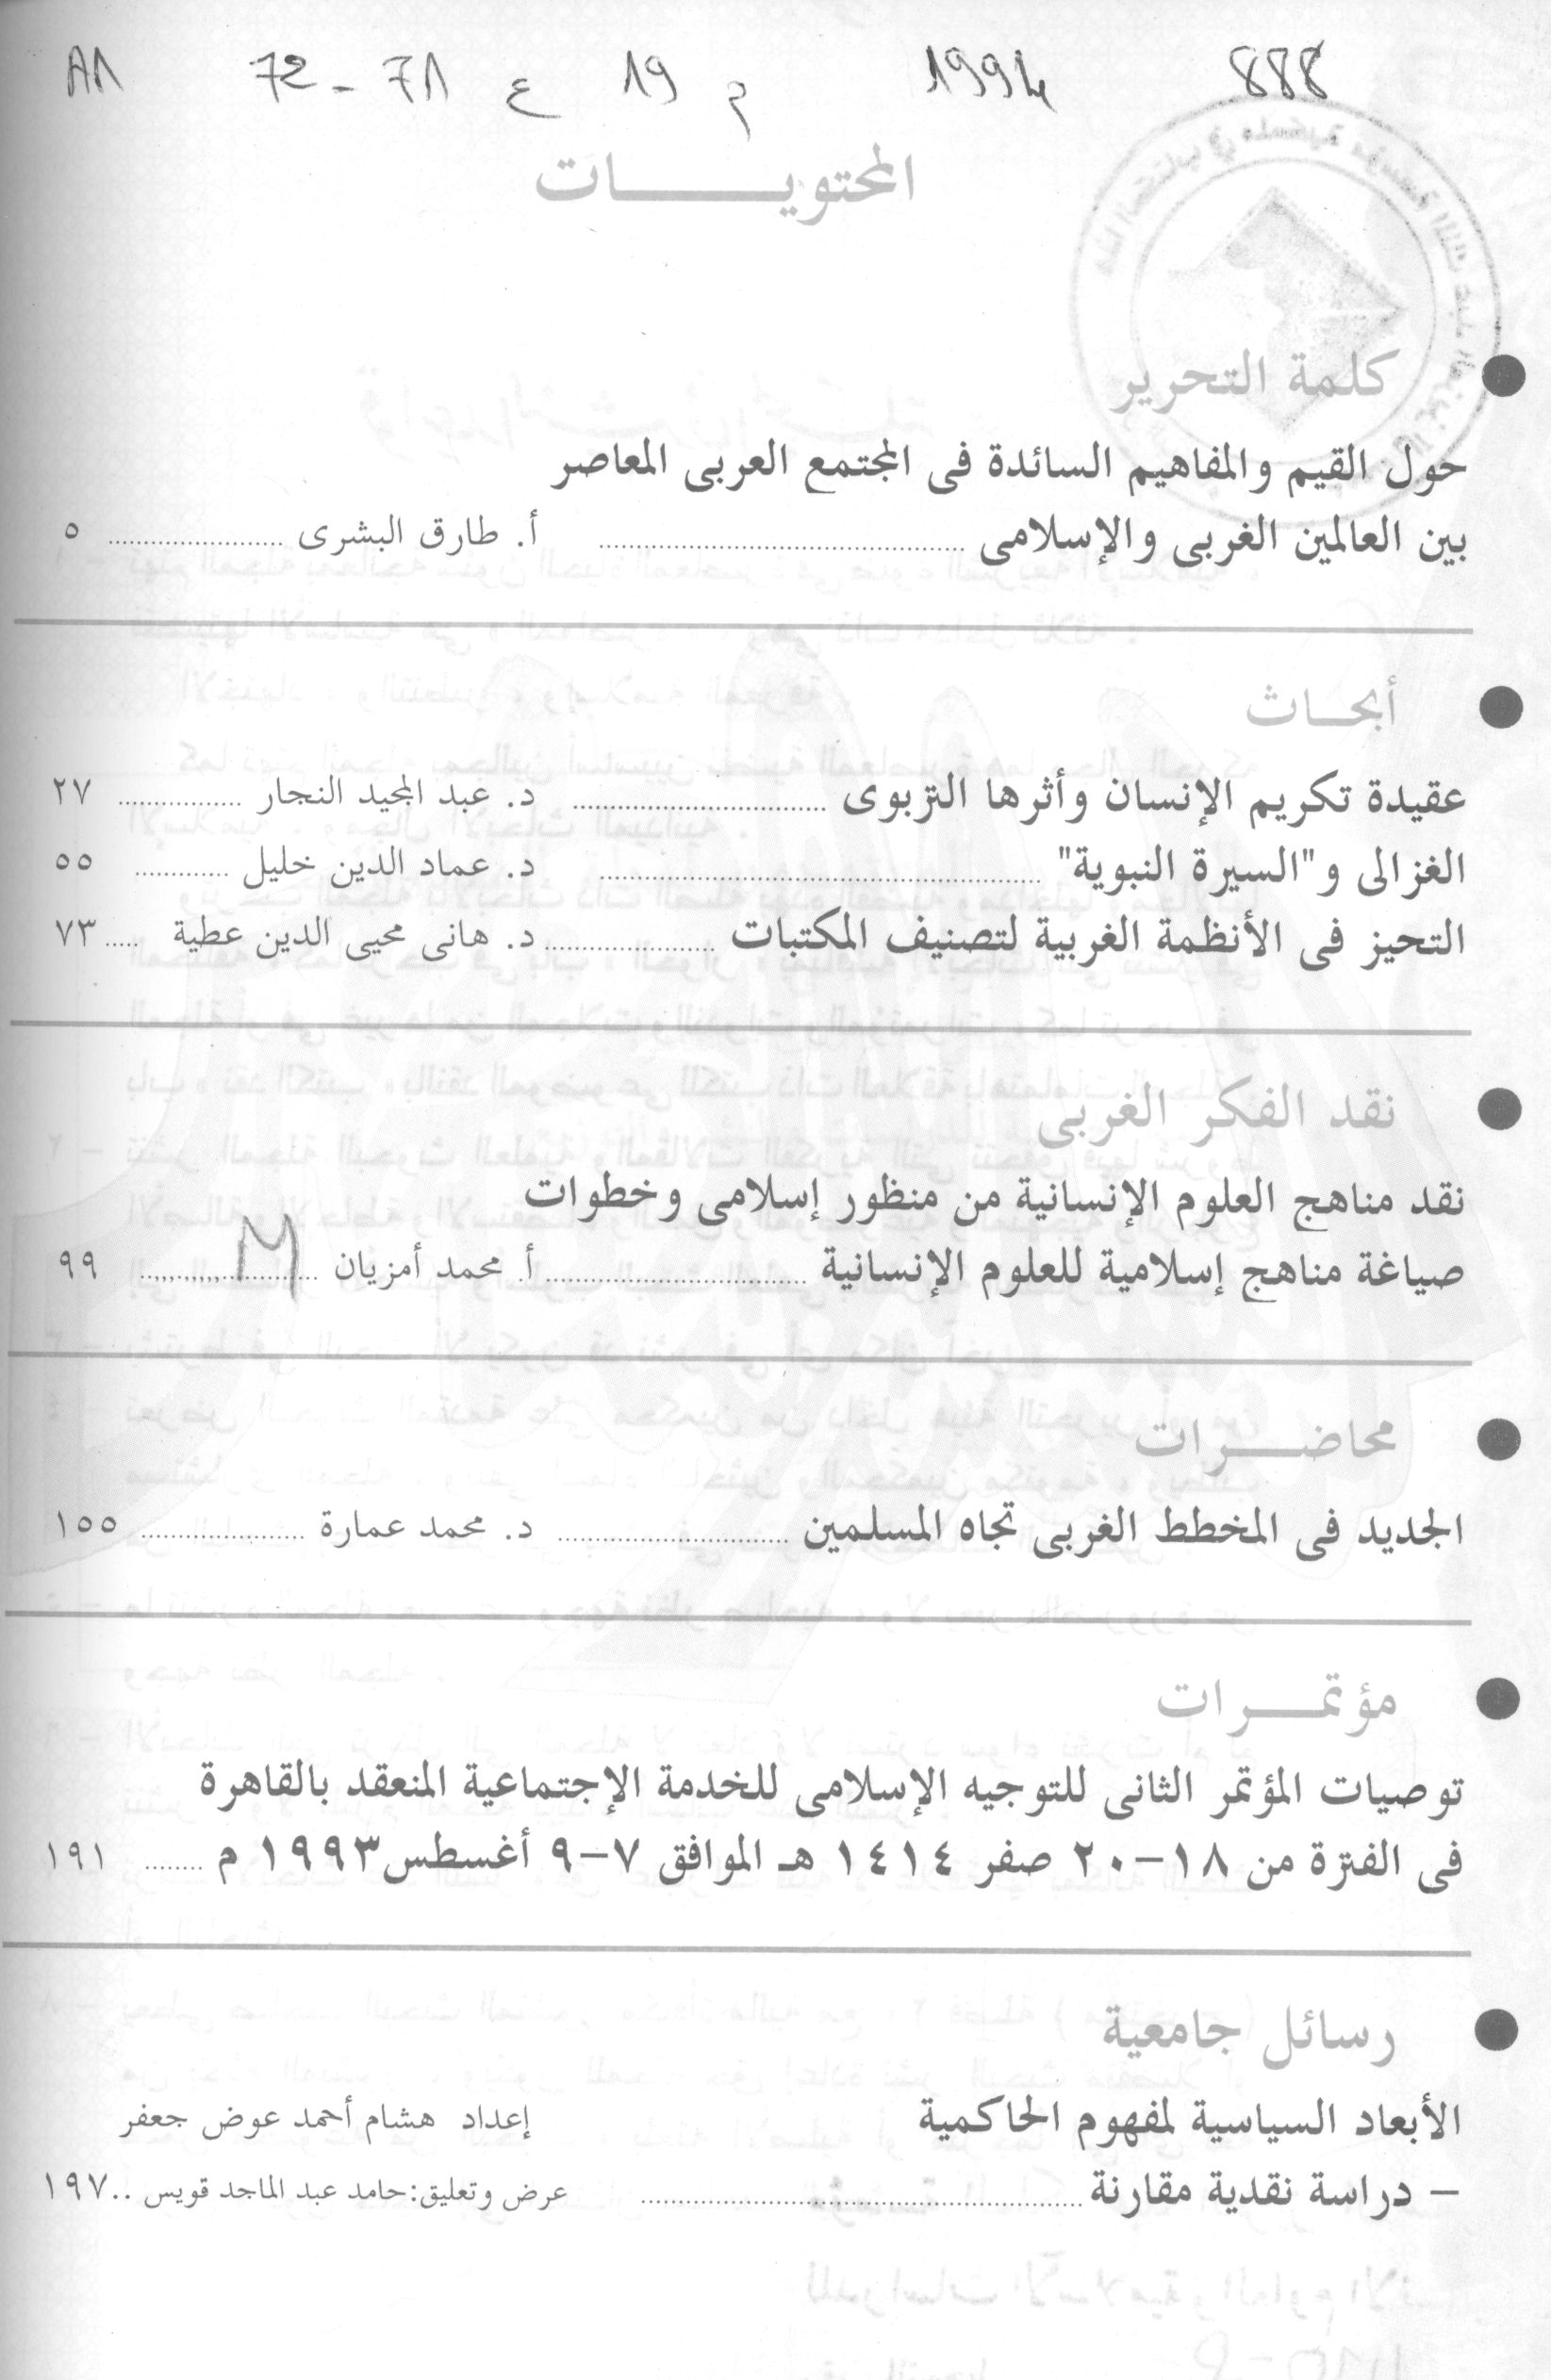 888 1994 م 19 ع 71 - 72
المحتويـــات
كلمة التحرير
حول القيم والمفاهيم السائدة فى المجتمع العربى المعاصر
بين العالمين الغربى والإسلامى ........ أ. طارق البشرى ........ ٥
أبحـاث
عقيدة تكريم الإنسان وأثرها التربوى ........ د. عبد المجيد النجار ........ ٢٧
الغزالى و"السيرة النبوية" ........ د. عماد الدين خليل ........ ٥٥
التحيز فى الأنظمة الغربية لتصنيف المكتبات ........ د. هانى محيى الدين عطية ..... ٧٣
نقد الفكر الغربى
نقد مناهج العلوم الإنسانية من منظور إسلامى وخطوات
صياغة مناهج إسلامية للعلوم الإنسانية ........ أ. محمد أمزيان ........ ٩٩
محاضـــرات
الجديد فى المخطط الغربى تجاه المسلمين ........ د. محمد عمارة ........ ١٥٥
مؤتمـــرات
توصيات المؤتمر الثانى للتوجيه الإسلامى للخدمة الإجتماعية المنعقد بالقاهرة
فى الفترة من ١٨-٢٠ صفر ١٤١٤ هـ الموافق ٧-٩ أغسطس ١٩٩٣ م ........ ١٩١
رسائل جامعية
الأبعاد السياسية لمفهوم الحاكمية إعداد هشام أحمد عوض جعفر
– دراسة نقدية مقارنة ........ عرض وتعليق: حامد عبد الماجد قويس .. ١٩٧